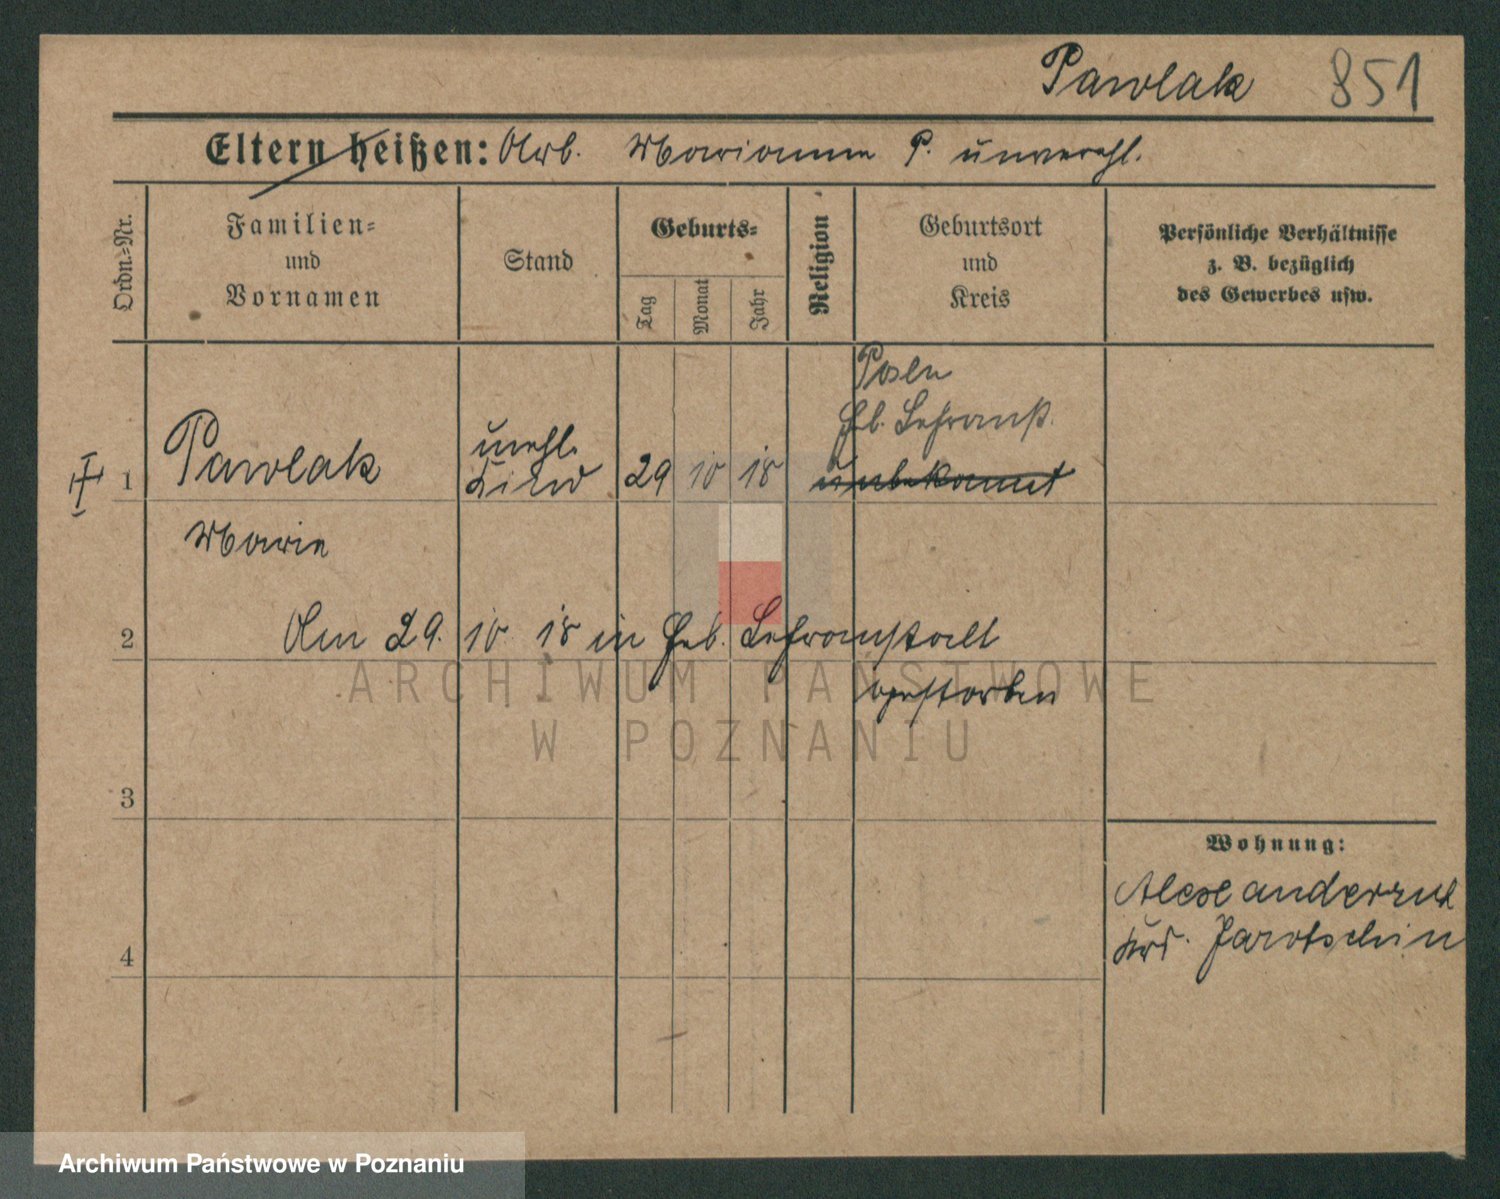 Pawlak 851
Eltern heißen: Arb. Marianna P. unverehl.
Ordn.=Nr.
Familien=
und
Vornamen
Stand
Geburts=
Tag
Monat
Jahr
Religion
Geburtsort
und
Kreis
Persönliche Verhältnisse
z. B. bezüglich
des Gewerbes usw.
Posen
Heb. Lehranst.
1 Pawlak unehl. Kind 29 10 18 unbekannt
Marie
2 Am 29. 10. 18 in Heb. Lehranstalt
gestorben
3
Wohnung:
Alexanderruh
Krs. Jarotschin
4
ARCHIWUM PAŃSTWOWE
W POZNANIU
Archiwum Państwowe w Poznaniu